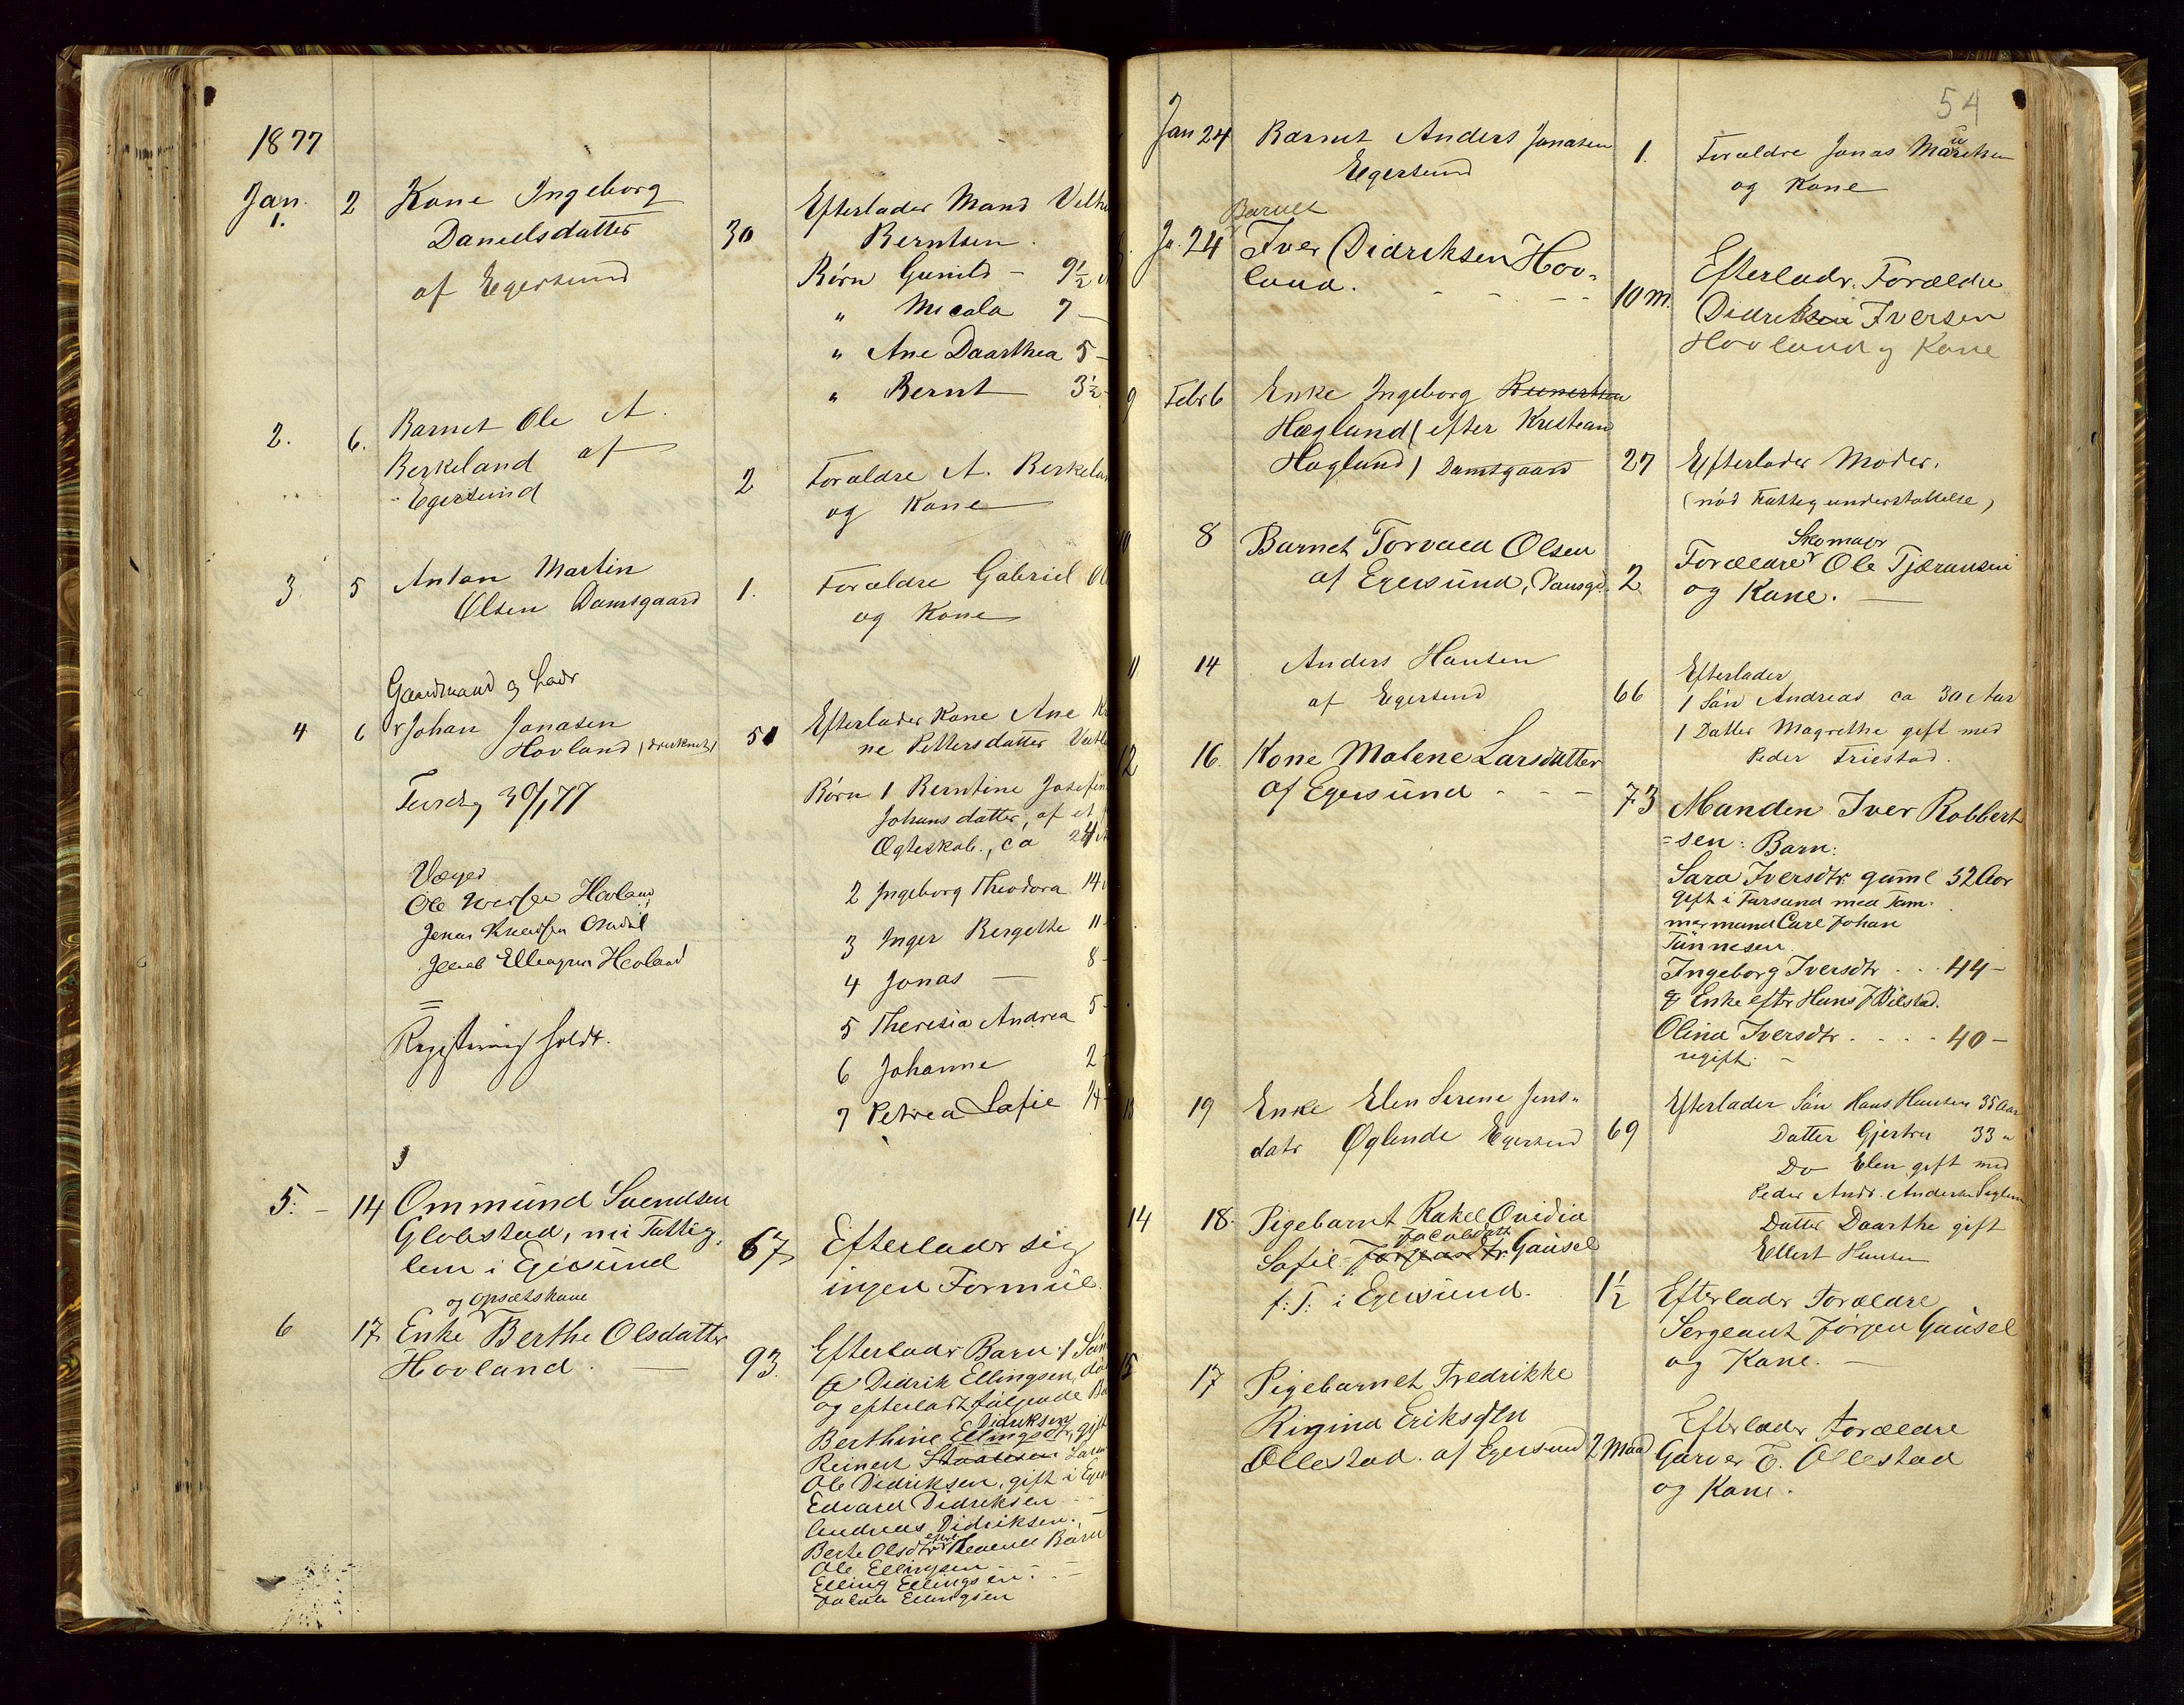 1877
Jan. 1. 2 Kone Ingeborg
Danielsdatter
af Egersund
30
Efterlader Mand
Berntsen.
Børn Gunild – 9½
" Micala 7 –
" Ane Daarthea 5 –
" Bernt 3½
2. 6. Barnet Ole A.
Berkeland af
Egersund
2
Foraldre A.
og Kone
3. 5 Anton Martin
Olsen Damsgaard
1.
Foraldre Gabriel
og Kone
Gaardmand og
4 6 Johan Jonasen
Hovland (druknet)
51
Efterlader Kone Ane
ne Pettersdatter
30/1 77
Børn 1 Berntine
Johans datter, af et
Ægteskab., ca 24
Ole Iversen Hovland
2 Ingeborg Theodora 14
3 Inger Bergette 11 –
Jacob Ellingsen Hovland
4 Jonas – 8 –
5 Theresia Andrea 5 –
Registrering holdt.
6 Johanne 2 –
7 Petrea Safie ¼ –
5. – 14 Ommund Svendsen
Globstad, nu Fattig-
lem i Egersund
67
Efterlader sig
ingen Formue.
og Opsætskone
6 17 Enke Berthe Olsdatter
Hovland. –
93.
Efterlader Barn: 1 Søn
Didrik Ellingsen, død
og efterladt følgende
Didriksen
Berthine Ellingsdtr, gift
Reinert
Ole Didriksen, gift i
Edvard Didriksen
Andreas Didriksen. –
efterl.
Berte Olsdtr Barn
Ole Ellingsen – –
Elling Ellingsen. – –
Jakob Ellingsen
54
Jan 24 Barnet Anders Jonasen
Egersund
1.
Foraldre Jonas
og Kone
Barnet
Ja. 24 Iver Didriksen Hov-
land.
10 m.
Efterladr. Forældre
Didriksen Iversen
Hovland og Kone
9 Febr 6 Enke Ingeborg
Hægland (efter Kristian
Hagland) Damsgaard
27
Efterlader Moder.
(nød Fattigunderstøttelse)
10 8 Barnet Torvald Olsen
af Egersund,
2
Skomagr
Forældre Ole Tjæransen
og Kone. –
11 14 Anders Hansen
af Egersund
66
Efterlader
1 Søn Andreas ca 30 Aar
1 Datter Magrethe gift med
Peder Friestad.
12 16. Kone Malene Larsdatter
af Egersund – – –
73
Manden Iver Robbert
=sen: Barn:
Sara Iversdtr. gaml 52 Aar
gift i Farsund med Tøm-
mermand Carl Johan
Tønnesen.
Ingeborg Iversdtr . . . 44 –
Enke efter Hans
Olina Iversdtr . . . . 40 –
ugift. –
13 19 Enke Elen Serene Jens-
datr Øglende Egersund
69
Efterlader Søn Hans Hansen 35 Aar
Datter Gjertru 33 "
Do Elen gift med
Peder Andr. Andersen
Datter Daarthe gift
Ellert Hansen
14 18. Pigebarnet Rakel Ovidia
Jacobdatt
Safie Jørgensdtr. Gausel
f: T: i Egersund.
1½
Efterladr Forældre
Sergeant Jørgen Gausel
og Kone. –
15 17 Pigebarnet Fredrikke
Rigina Eriksden
Ollestad. af Egersund
2 Maad
Efterladr Forældre
Garver E. Ollestad
og Kone.